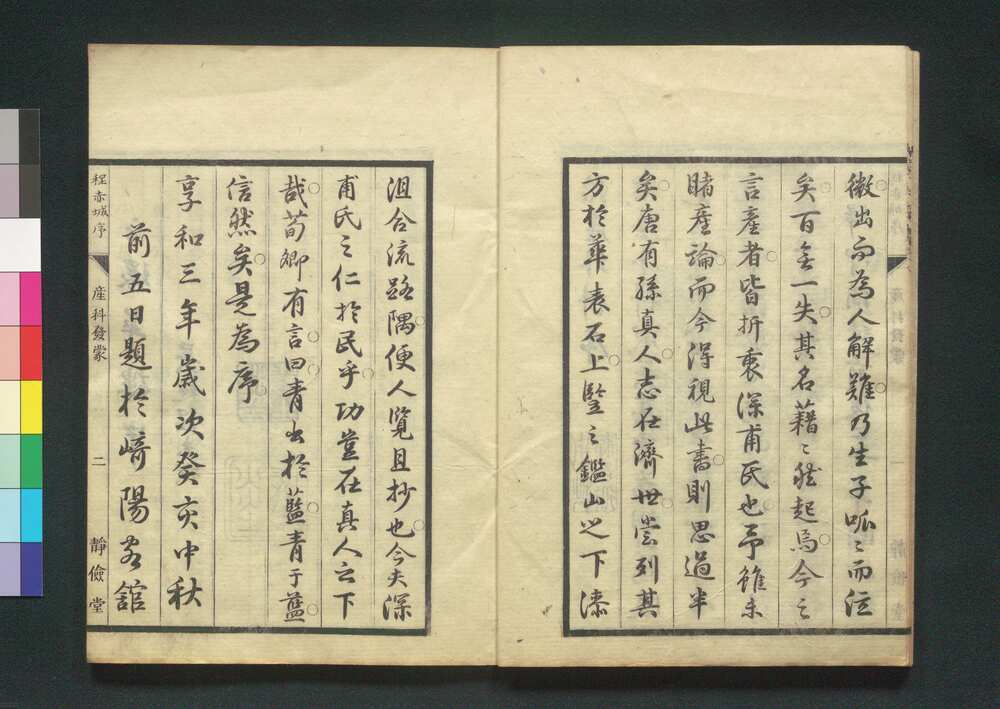 微出而為人解難乃生子呱〻而泣
矣百無一失其名藉〻然起焉今之
言產者皆折衷深甫氏也予雖未
睹產論而今得視此書則思過半
矣唐有孫真人志在濟世嘗列其
方於華表石上豎之鑑山之下漆
沮合流路隅便人覽且抄也今夫深
甫氏之仁於民乎功豈在真人之下
哉荀卿有言曰青出於藍青于藍
信然矣是為序
享和三年歲次癸亥中秋
前五日題於崎陽客舘
程赤城序
產科發蒙
二
靜儉堂